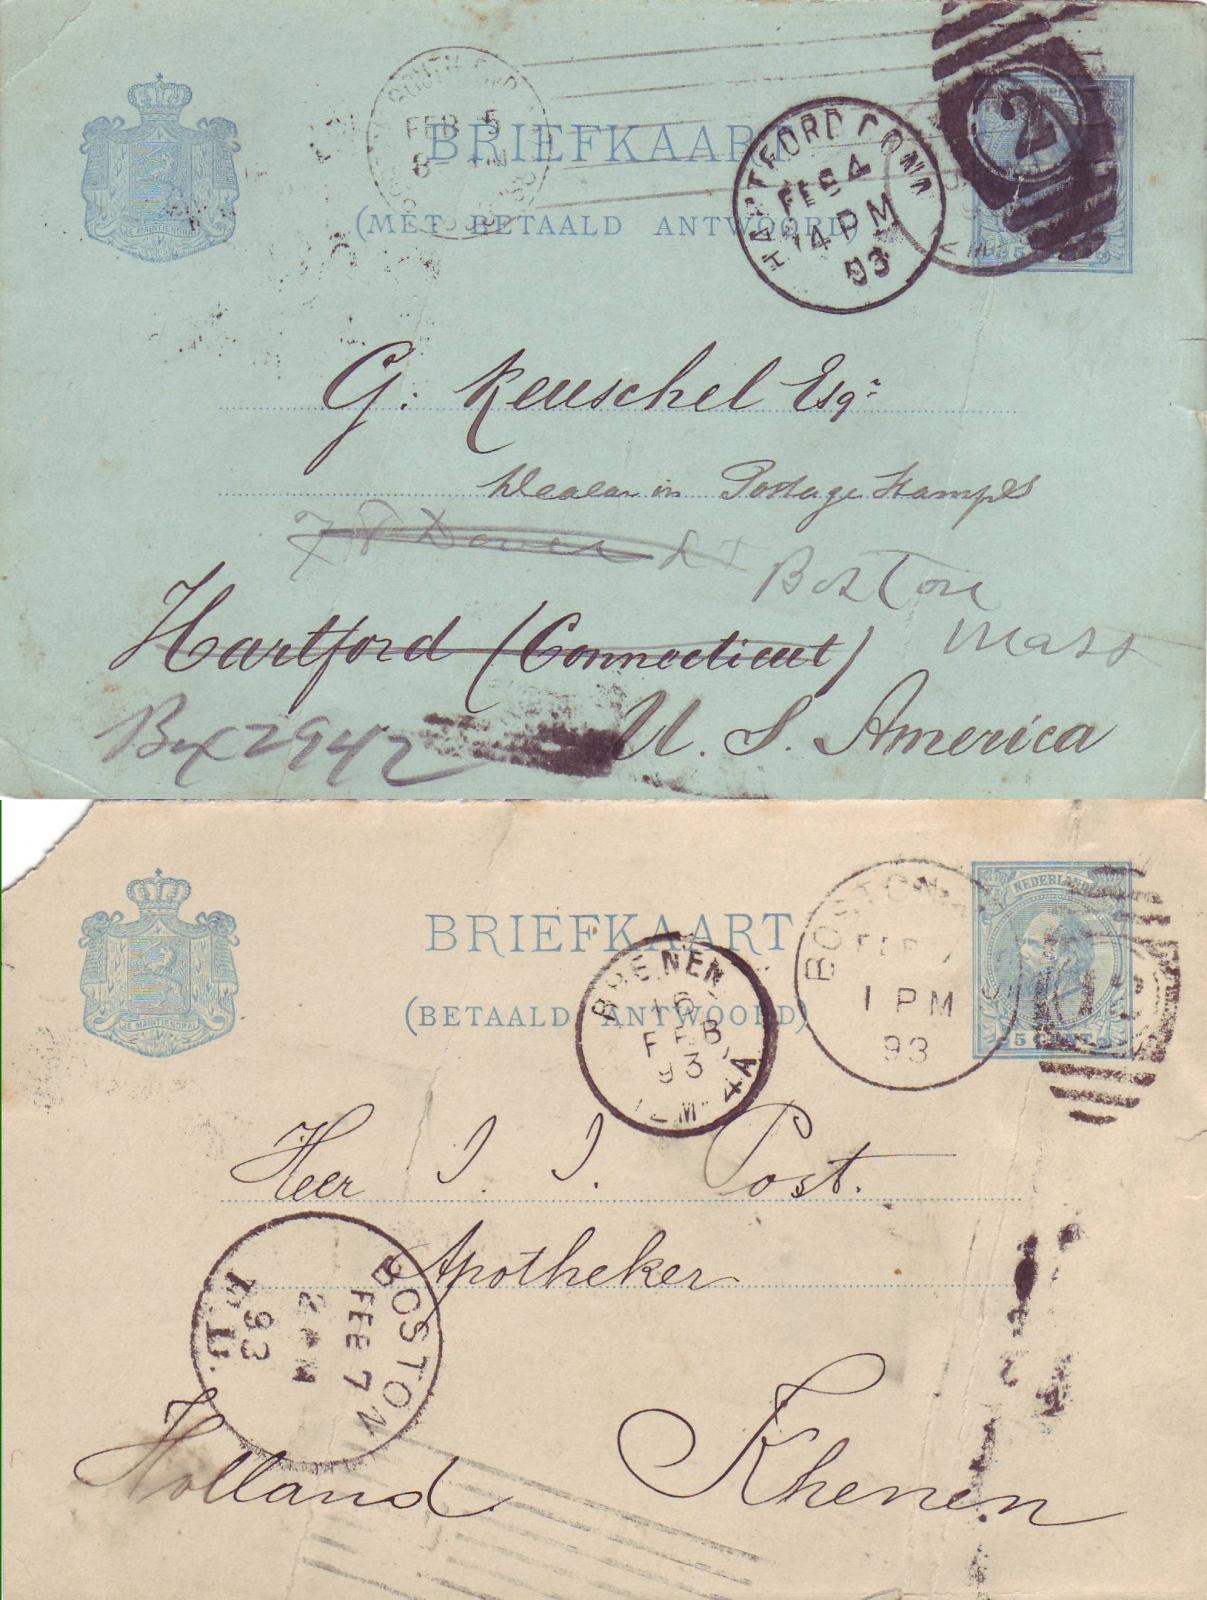 JE MAINTIENDRAI
SOUTH END
FEB 5
8
BRIEFKAART
(MET BETAALD ANTWOORD)
HARTFORD CONN
FEB 4
4 PM
93
2
G: Keuschel Esqr
Dealer in Postage Stamps
78 Dover St
Boston
Mass
Hartford (Connecticut)
Box 2942
U. S. America
JE MAINTIENDRAI
BRIEFKAART
(BETAALD ANTWOORD)
NEDERLAND
5 CENT
BOSTON
FEB 7
1 PM
93
12
RHENEN
16
FEB
93
Heer J. J. Post.
Apotheker
BOSTON
FEB 7
2
93
Rhenen
Holland